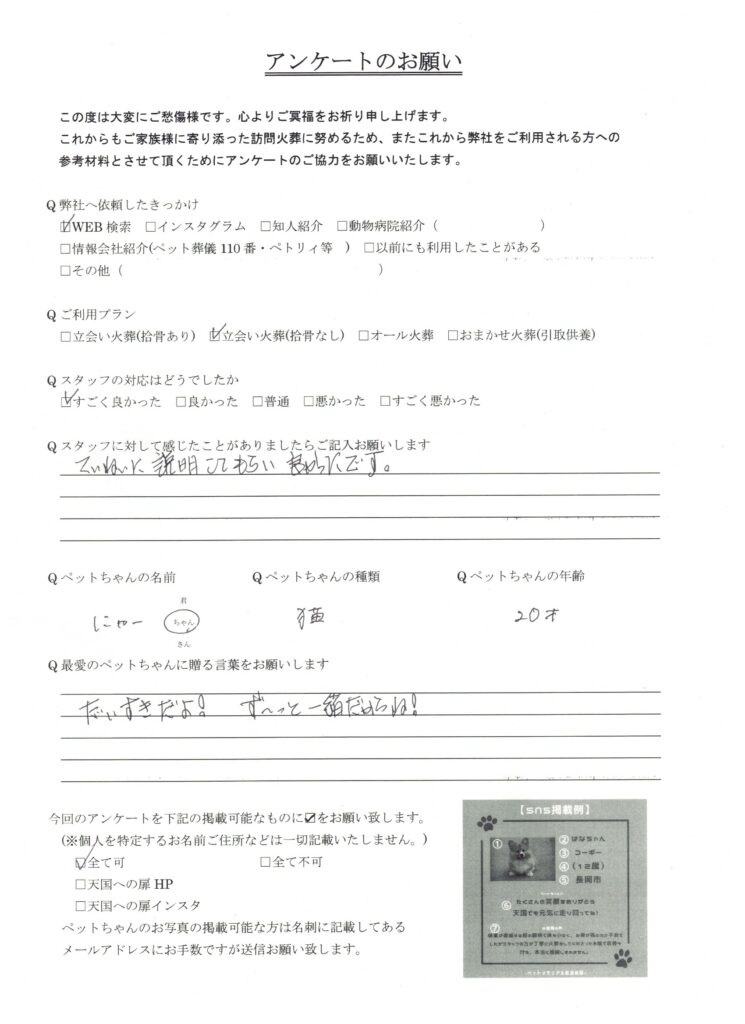 アンケートのお願い
この度は大変にご愁傷様です。心よりご冥福をお祈り申し上げます。
これからもご家族様に寄り添った訪問火葬に努めるため、またこれから弊社をご利用される方への
参考材料とさせて頂くためにアンケートのご協力をお願いいたします。
Q 弊社へ依頼したきっかけ
☑WEB 検索 □インスタグラム □知人紹介 □動物病院紹介（ ）
□情報会社紹介(ペット葬儀 110 番・ペトリィ等 ) □以前にも利用したことがある
□その他（ ）
Q ご利用プラン
□立会い火葬(拾骨あり) ☑立会い火葬(拾骨なし) □オール火葬 □おまかせ火葬(引取供養)
Q スタッフの対応はどうでしたか
☑すごく良かった □良かった □普通 □悪かった □すごく悪かった
Q スタッフに対して感じたことがありましたらご記入お願いします
ていねいに説明してもらい良かったです。
Q ペットちゃんの名前 Q ペットちゃんの種類 Q ペットちゃんの年齢
君
にゃー ちゃん 猫 20才
さん
Q 最愛のペットちゃんに贈る言葉をお願いします
だいすきだよ! ず〜っと一緒だからね!
今回のアンケートを下記の掲載可能なものに☑をお願い致します。
(※個人を特定するお名前ご住所などは一切記載いたしません。)
☑全て可 □全て不可
□天国への扉 HP
□天国への扉インスタ
ペットちゃんのお写真の掲載可能な方は名刺に記載してある
メールアドレスにお手数ですが送信お願い致します。
【sns掲載例】
① ② はなちゃん
③ コーギー
④ (12歳)
⑤ 長岡市
⑥ たくさんの笑顔をありがとう
天国でも元気に走り回ってね!
⑦